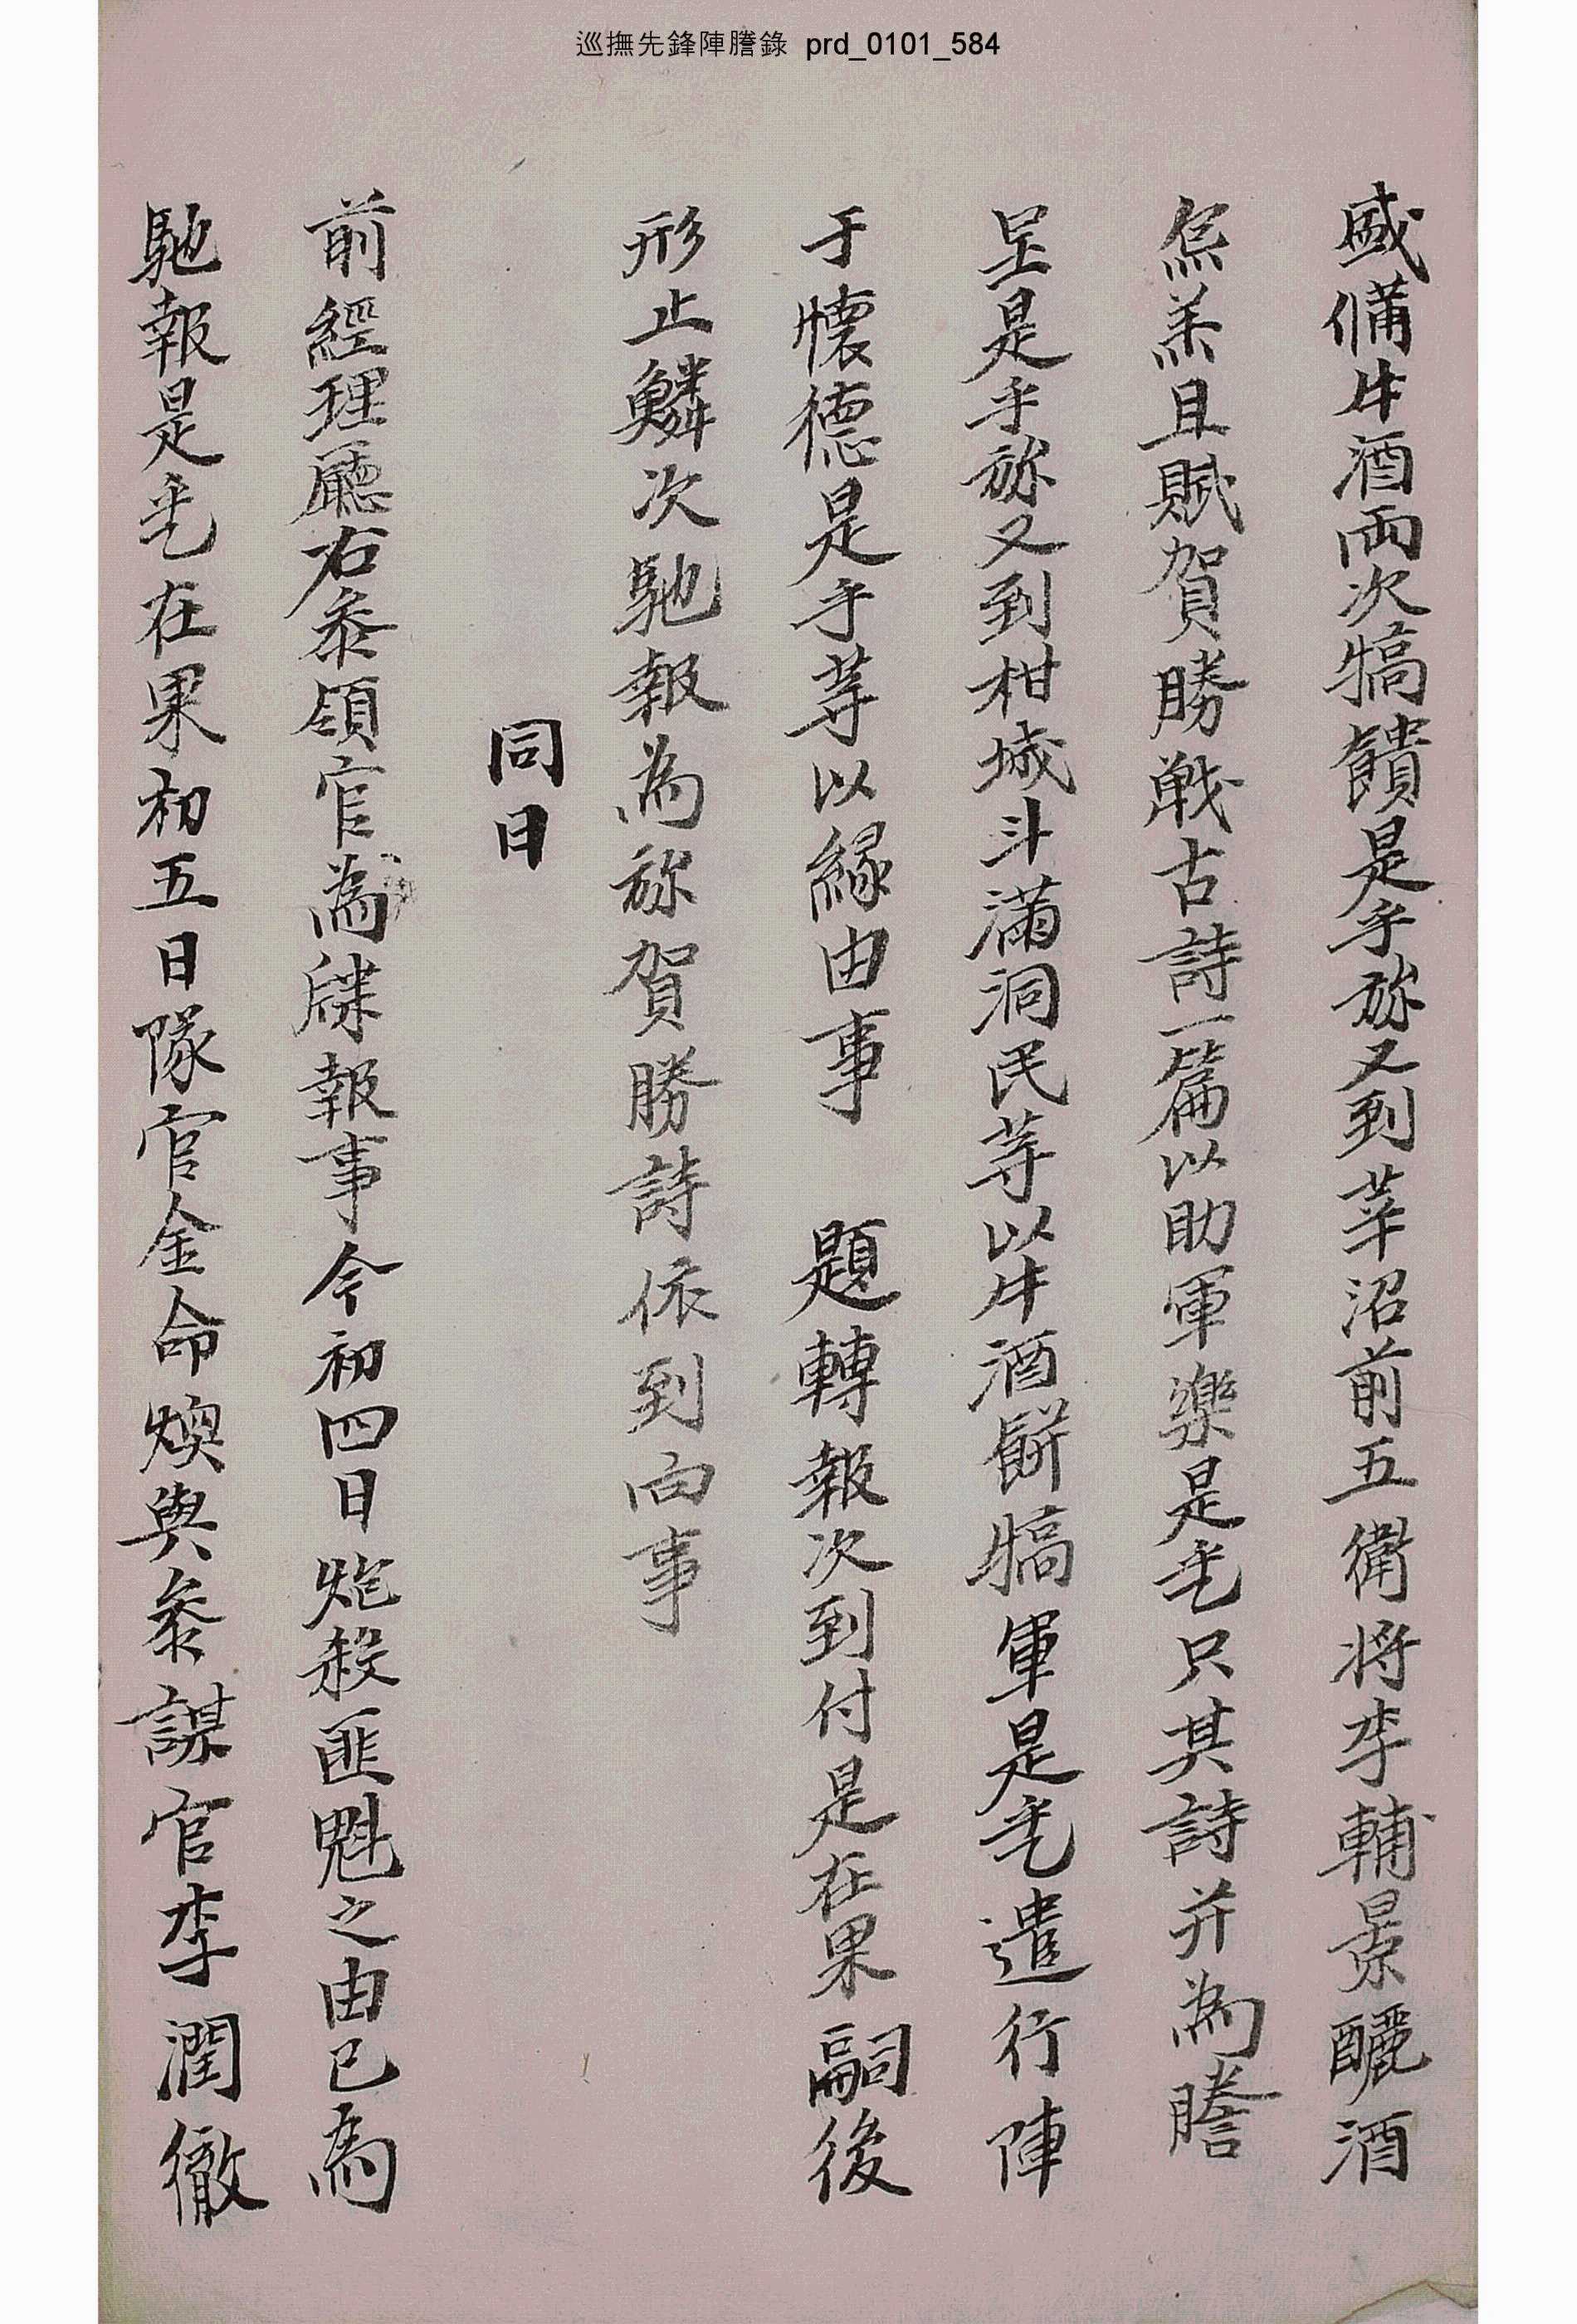 巡撫先鋒陣謄錄 prd_0101_584
盛備牛酒兩次犒饋是乎旀又到莘沼前五衛將李輔景釃酒
炰羔且賦賀勝戰古詩一篇以助軍樂是乎只其詩幷爲謄
呈是乎旀又到柑城斗滿洞民等以牛酒餠犒軍是乎遣行陣
于懷德是乎等以緣由事 題轉報次到付是在果嗣後
形止鱗次馳報爲旀賀勝詩依到向事
同日
前經理廳右參領官爲牒報事今初四日炮殺匪魁之由已爲
馳報是乎在果初五日隊官金命煥與參謀官李潤徹